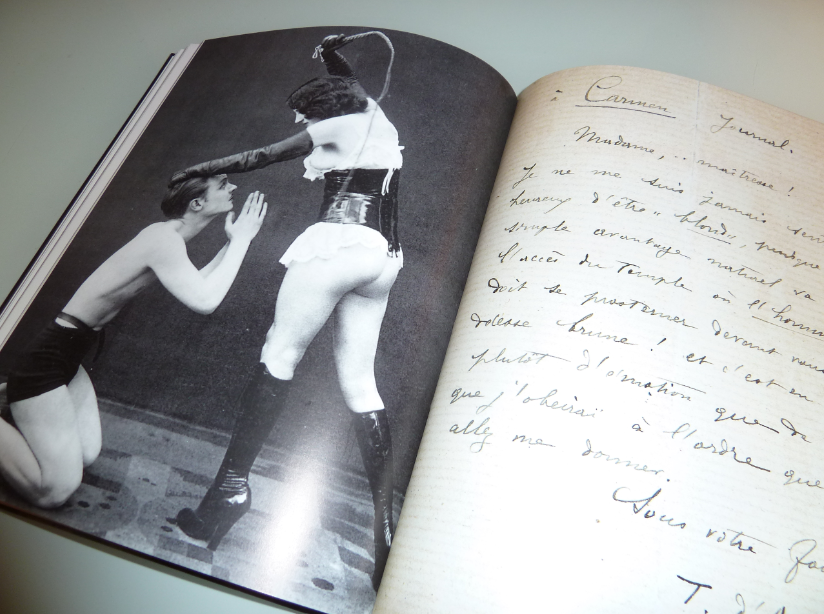 à Carmen Journal.
Madame, .. maîtresse !
Je ne me suis jamais
heureux d'être "blond",
simple avantage naturel va
l'accès du Temple où l'homme
doit se prosterner devant vous
déesse brune ! et c'est en
plutôt d'émotion que de
que j'obéirai à l'ordre que
allez me donner.
Sous votre
T.